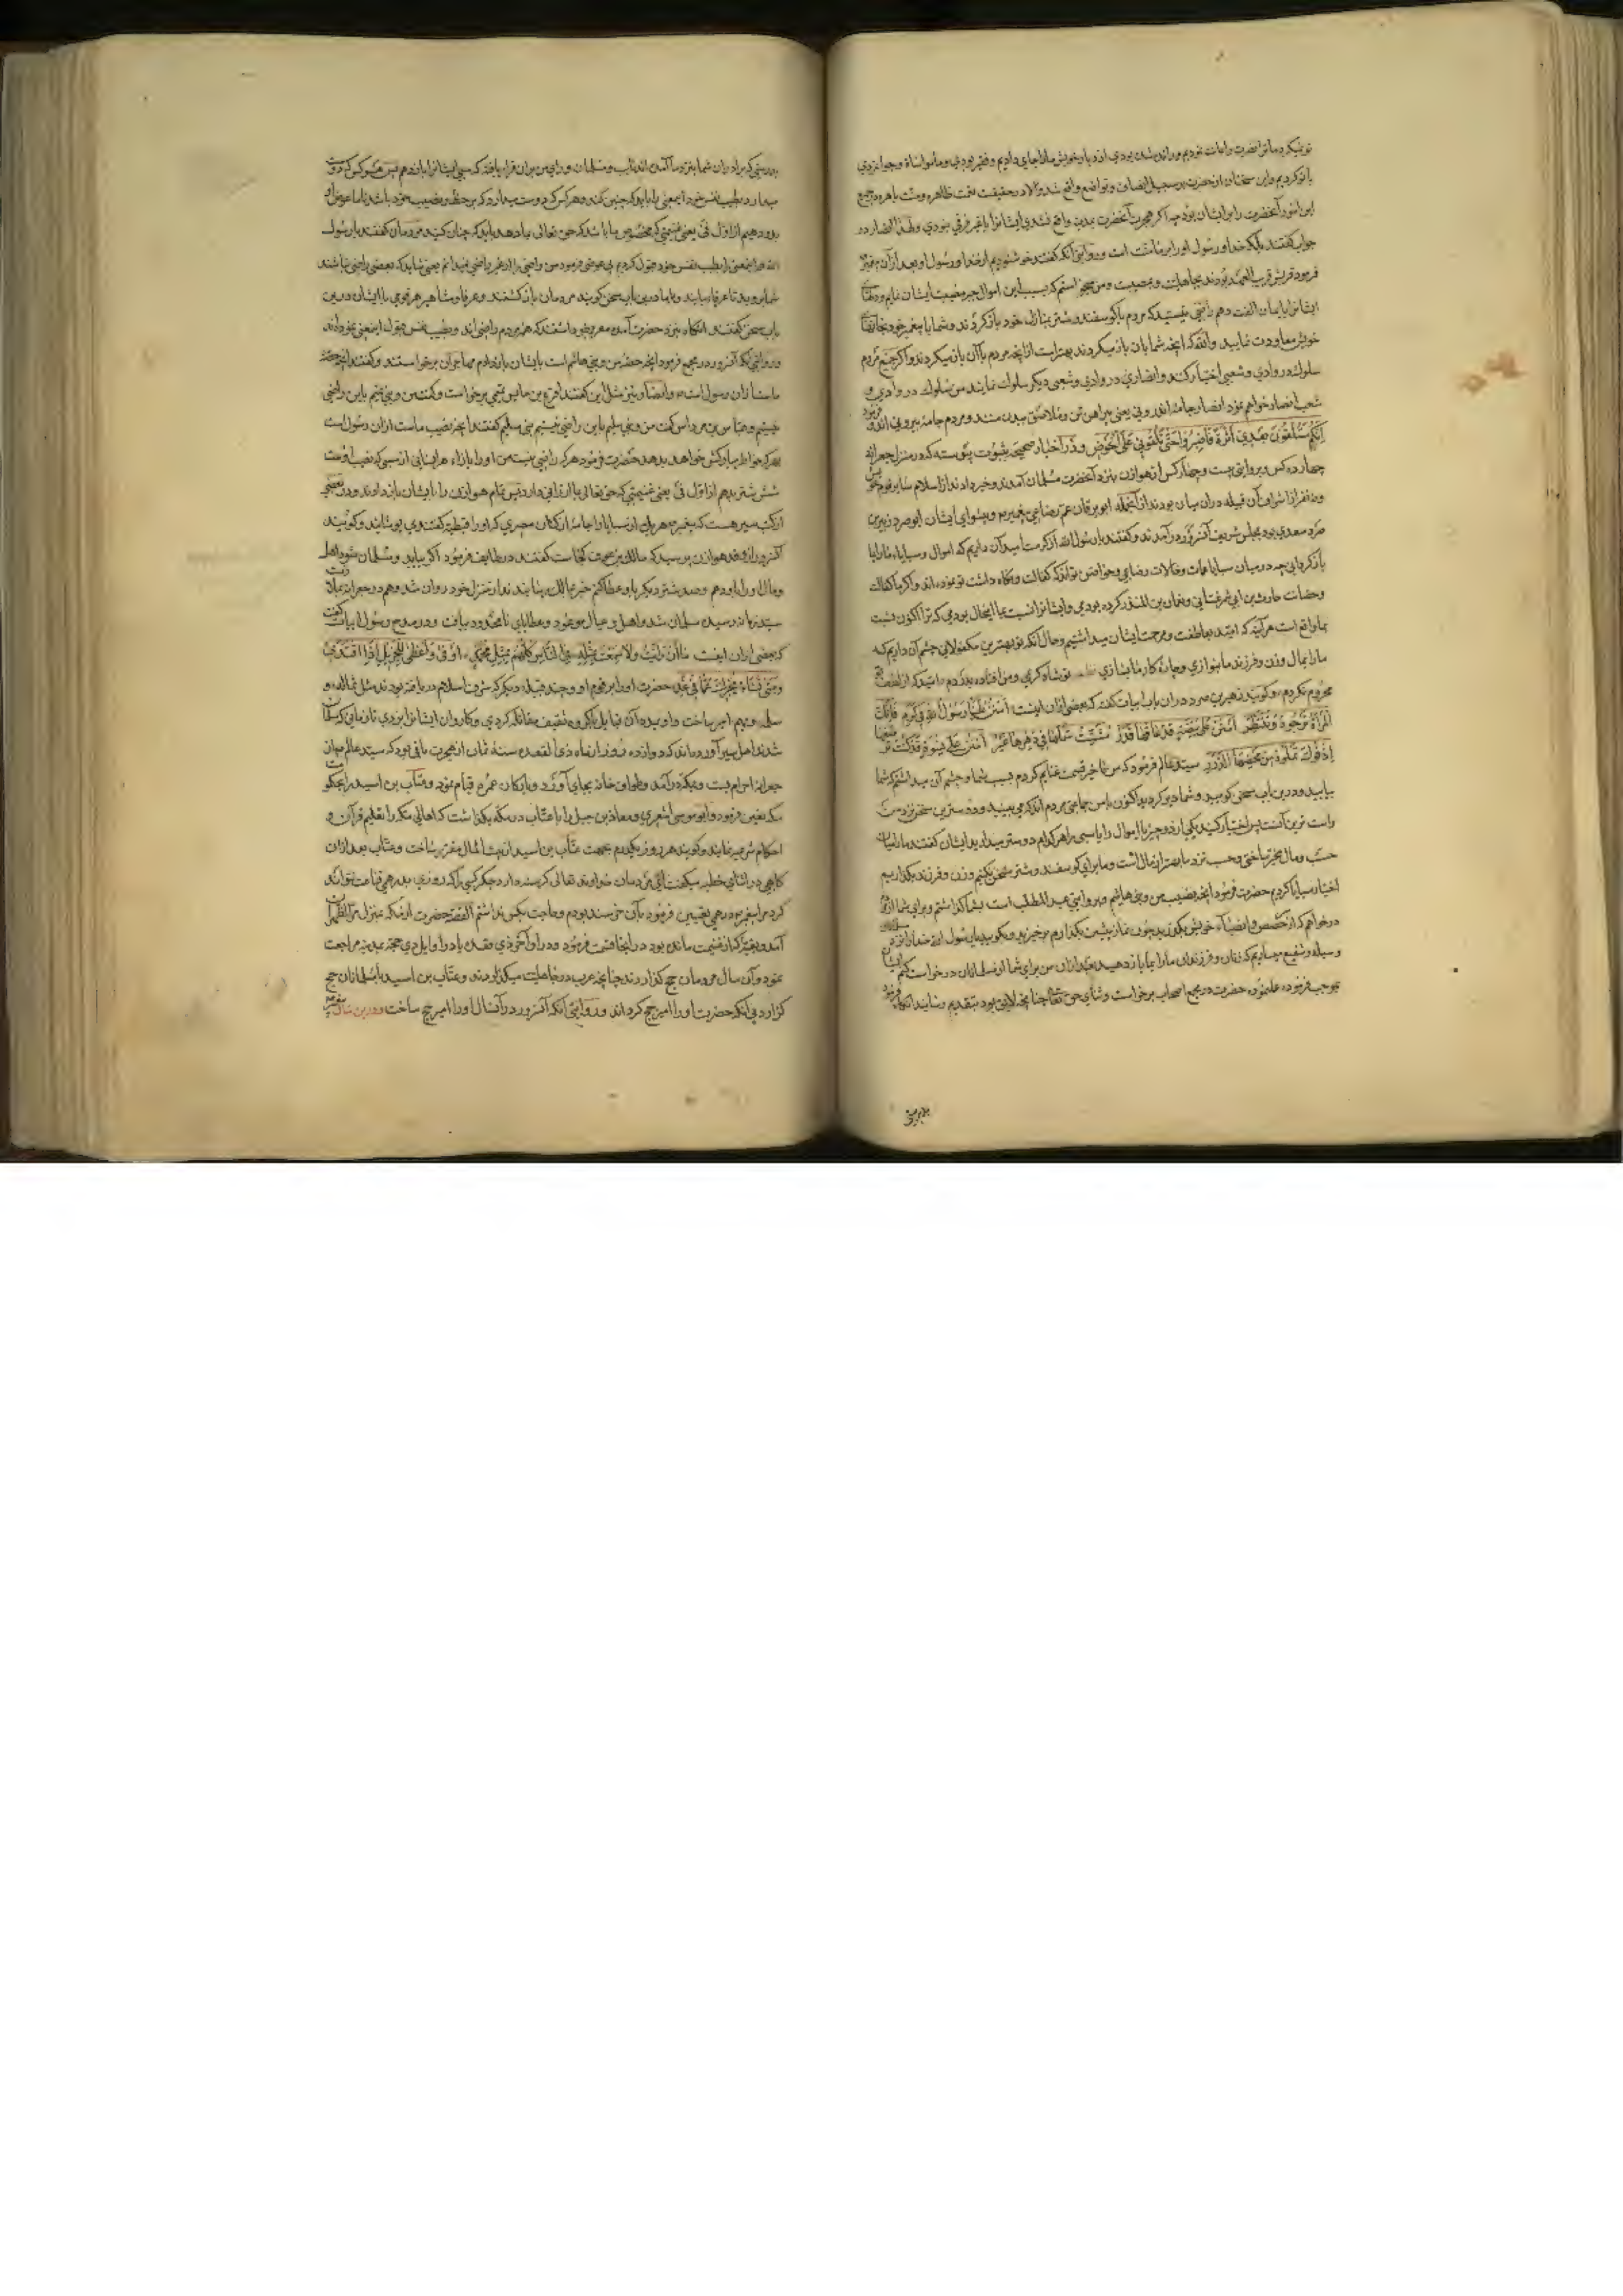 تو نیکرد ما ترا نصرت و اعانت نمودیم و رانده شده بودی از دیار خویش ما ترا جای دادیم و فقیر بودی و ما مواساة و جوانمردی
با تو کردیم و این سخنان از حضرت بر سبیل انصاف و تواضع واقع شد و الا در حقیقت نعمت ظاهره و منت باهره در جمیع
این امور آنحضرت را بر ایشان بود چه اگر هجرت آنحضرت بدین واقع نشدی ایشانرا با غیر فرقی نبودی و لهذا انصار در
جواب گفتند بلکه خدا و رسول او را بر ما منت است و روایتی آنکه گفتند خوشنودیم از خدا و رسول او بعد از آن پیغمبر
فرمود قریش قریب العهد بودند بجاهلیت و مصیبت و من میخواستم که بسبب این اموال جبر مصیبت ایشان نمایم و دلهای
ایشانرا بایمان الفت دهم راضی نیستید که مردم با گوسفند و شتر بمنازل خود باز گردند و شما با پیغمبر خود بخانهای
خویش معاودت نمایید والله که آنچه شما بآن باز میگردید بهتر است از آنچه مردم بآن باز میگردند و اگر جمیع مردم
سلوک در وادی و شعبی اختیار کنند و انصار در وادی و شعبی دیگر سلوک نمایند من سلوک در وادی و
شعب انصار خواهم نمود انصار جامه اندرونی یعنی پیراهن تن و ملاصق بدن منند و مردم جامه بیرونی اند و فرمود
اِنَّکُمْ سَتَلْقَوْنَ بَعْدِی اَثَرَةً فَاصْبِرُوا حَتَّی تَلْقَوْنِی عَلَی الْحَوْضِ و در اخبار صحیحه بثبوت پیوسته که در منزل جعرانه
چهارده کس و بروایتی بیست و چهار کس از هوازن بنزد آنحضرت مسلمان آمدند و خبر دادند از اسلام سایر قوم خویش
و ده نفر از اشراف آن قبیله در آن میان بودند از آنجمله ابو برقان عم رضاعی پیغمبر و پیشوای ایشان ابو صرد زهیر بن
صرد سعدی بود بمجلس شریف آنسرور در آمدند و گفتند یا رسول الله از کرمت امید آن داریم که اموال و سبایاء ما را بما
باز گردانی چه در میان سبایا عمات و خالات رضاعی و حواضن تواند که کفالت و نگاه داشت تو نموده‌اند و اگر ما کفالت
و حضانت حارث بن ابی شمر غسانی و نعمان بن المنذر کرده بودمی و ایشانرا نسبت بما اینحال بودمی که ترا اکنون نسبت
بما واقع است هر آینه که امید بعاطفت و مرحمت ایشان میداشتیم و حال آنکه تو بهترین مکفولانی چشم آن داریم که
ما را بمال و زن و فرزند ما بنوازی و چاره کار ما بسازی تو شاه کرمی و من افتاده بدرگاهم
محروم نگردم و گویند زهیر بن صرد در آن باب ابیات گفت که بعضی از آن اینست اُمْنُنْ عَلَیْنَا رَسُولَ اللهِ فِی کَرَمٍ فَاِنَّکَ
الْمَرْءُ نَرْجُوهُ وَنَنْتَظِرُ اُمْنُنْ عَلَی بَیْضَةٍ قَدْ عَاقَهَا قَدَرٌ مُشَتِّتٌ شَمْلَهَا فِی دَهْرِهَا غِیَرُ اُمْنُنْ عَلَی نِسْوَةٍ قَدْ کُنْتَ تَرْضَعُهَا
اِذْ فُوکَ تَمْلَؤُهُ مِنْ مَحْضِهَا الدُّرَرُ سید عالم فرمود که من تاخیر قسمت غنایم کردم بسبب شما و چشم آن میداشتم که شما
بیایید و درین باب سخن گویید و شما دیر کردید اکنون با من جماعتی مردم اند که می بینید و دوسترین سخن نزد من
راست ترین آنست پس اختیار کنید یکی از دو چیز یا اموال را یا سبی را هر کدام دوستر میدارید ایشان گفتند ما را میان
حسب و مال مخیر ساختی و حسب نزد ما بهتر از مال است و ما برای گوسفند و شتر سخن نکنیم و زن و فرزند بگذاریم
اختیار سبایا کردیم حضرت فرمود آنچه نصیب من و بنی هاشم و بنی عبد المطلب است بشما گذاشتم و برای شما از مردم
درخواهم که از حصص و انصباء خویش بگذرند چون نماز پیشین بگذارم برخیزید و بگویید یا رسول الله خدا را نزد
وسیله و شفیع میسازیم که زنان و فرزندان ما را بما باز دهید بعد از آن من برای شما از مسلمانان درخواست کنم ایشان
بموجب فرموده عمل نموده حضرت در مجمع اصحاب برخاست و ثنای حق تعالی چنانچه لایق بود بتقدیم رسانید آنگاه فرمود
بدرستی
بدرستی که برادران شما بنزد ما آمده‌اند تایب و مسلمان و رای من بر آن قرار یافته که سبی ایشانرا باز دهم پس هر کس که دوست
میدارد بطیب نفس خود اینمعنی را باید که چنین کند و هر کس که دوست میدارد که بر حظ و نصیب خود باشد تا ما عوض آنرا
بدو دهیم از اول فیء یعنی غنیمتی که مخصوص ما باشد که حق تعالی بما دهد باید که چنان کنید مردمان گفتند یا رسول
الله ما اینمعنی را بطیب نفس خود قبول کردیم بی عوض فرمود من راضی را از غیر راضی نمیدانم یعنی شاید که بعضی راضی نباشند
شما بروید تا عرفاء بیایند و با ما درین باب سخن گویند مردمان باز گشتند و عرفاء و مشاهیر هر قومی با ایشان درین
باب سخن گفتند آنگاه بنزد حضرت آمده معروض داشتند که همه مردم راضی اند و بطیب نفس قبول اینمعنی نموده‌اند
و روایتی آنکه آنسرور در مجمع فرمود آنچه حصه من و بنی هاشم است بایشان باز دادم مهاجران برخواستند و گفتند آنچه حصه
ماست از آن رسول است و انصار نیز مثل این گفتند اقرع بن حابس تمیمی برخواست و گفت من و بنی تمیم باین راضی
نیستیم و عباس بن مرداس گفت من و بنی سلیم باین راضی نیستیم بنی سلیم گفتند آنچه نصیب ماست از آن رسول است
بهر که خواهد بدهد حضرت فرمود هر که راضی نیست من او را بازاء هر انسانی از سبی که نصیب اوست
شش شتر بدهم از اول فیء یعنی غنیمتی که حق تعالی بما ارزانی دارد پس تمام هوازن را بایشان باز دادند و در بعضی
از کتب سیر هست که پیغمبر هر یک از سبایا را جامه از کتان مصری که او را قبطیه گفتندی پوشانید و گویند
آنسرور از وفد هوازن پرسید که مالک بن عوف کجاست گفتند در طایف فرمود اگر بیاید و مسلمان شود اهل
و مال او را باو دهم و صد شتر دیگر باو عطا کنم خبر بمالک رسانیدند از منزل خود روان شد و هم در جعرانه بملازمت
سید رسید مسلمان شد و اهل و عیال موعود و عطایای نامحدود یافت و در مدح رسول ابیات گفت
که بعضی از آن اینست مَا اِنْ رَاَیْتُ وَلَا سَمِعْتُ بِمِثْلِهِ فِی النَّاسِ کُلِّهِمُ بِمِثْلِ مُحَمَّدٍ اَوْفَی وَاَعْطَی لِلْجَزِیلِ اِذَا اجْتُدِی
وَمَتَی تَشَاءُ یُخْبِرْکَ عَمَّا فِی غَدٍ حضرت او را بر قوم او و چند قبیله دیگر که شرف اسلام دریافته بودند مثل ثماله و
سلمه و فهم امیر ساخت و او بمدد آن قبایل با گروه ثقیف مقاتله کردی و کاروان ایشانرا بزدی تا زمانی که مسلمان
شدند اهل سیر آورده‌اند که دوازده روز از ماه ذی القعده سنه ثمان از هجرت باقی بود که سید عالم میان
جعرانه احرام بست و بمکه در آمد و طواف خانه بجای آورد و بارکان عمره قیام نمود و عتاب بن اسید را بحکومت
مکه تعیین فرمود و ابو موسی اشعری و معاذ بن جبل را با عتاب در مکه بگذاشت که اهالی مکه را تعلیم قرآن و
احکام شرعیه نمایند و گویند هر روز یکدرم بجهت عتاب بن اسید از بیت المال مقرر ساخت و عتاب بعد از آن
گاهی در اثنای خطبه میگفت ای مردمان خداوند تعالی گرسنه دارد جگر کسی را که روزی بدرهمی قناعت نتواند
کرد مرا پیغمبر درهمی تعیین فرمود بآن خرسند بودم و حاجت بکس نداشتم القصه حضرت از مکه بمنزل مر الظهران
آمد و بقیه که از غنیمت مانده بود در آنجا قسمت فرمود و در اواخر ذی قعده یا در اوایل ذی حجه بمدینه مراجعت
نمود و آن سال مردمان حج گذاردند چنانچه عرب در جاهلیت میگذاردند و عتاب بن اسید با مسلمانان حج
گزارد بی آنکه حضرت او را امیر حج کرداند و روایتی آنکه آنسرور در آنسال او را امیر حج ساخت و درین سال